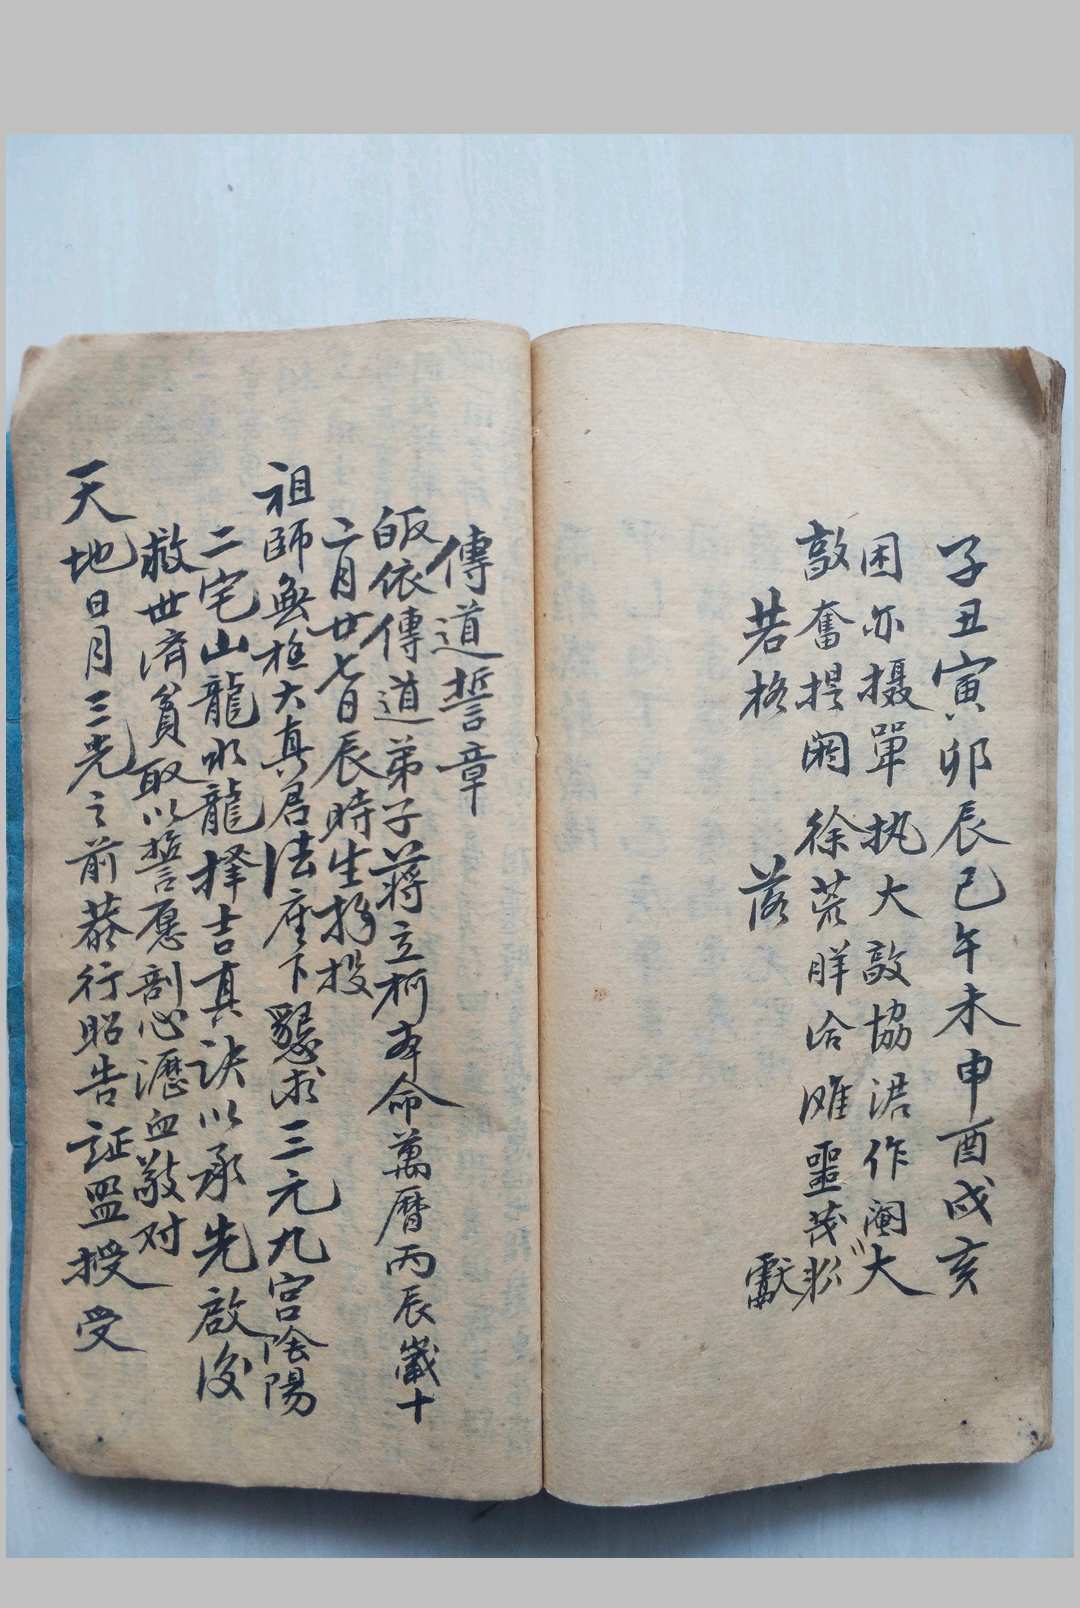 子丑寅卯辰巳午未申酉戌亥
困亦摄單执大敦協涒作阉大
敦奮提閼徐荒牂洽灘噩茂淵
若格落獻
傳道誓章
皈依傳道弟子蔣立柯本命萬曆丙辰歲十
二月廿七日辰時生投
祖師無極大真君法座下懇求三元九宫陰陽
二宅山龍水龍擇吉真訣以承先啟後
救世濟貧取以誓愿剖心瀝血敬对
天地日月三光之前恭行昭告証盟授受